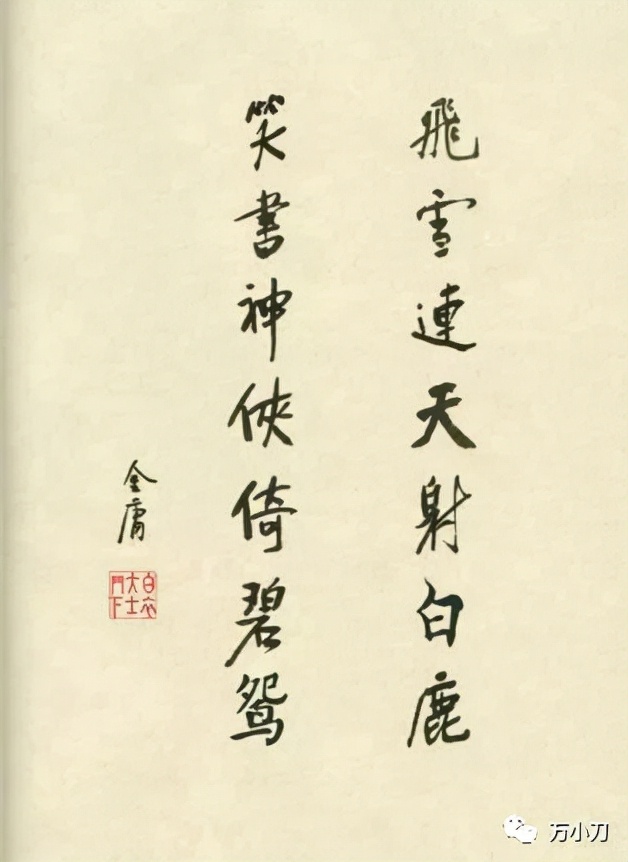 飛雪連天射白鹿
笑書神俠倚碧鴛
金庸
白衣大士門下
万小刀